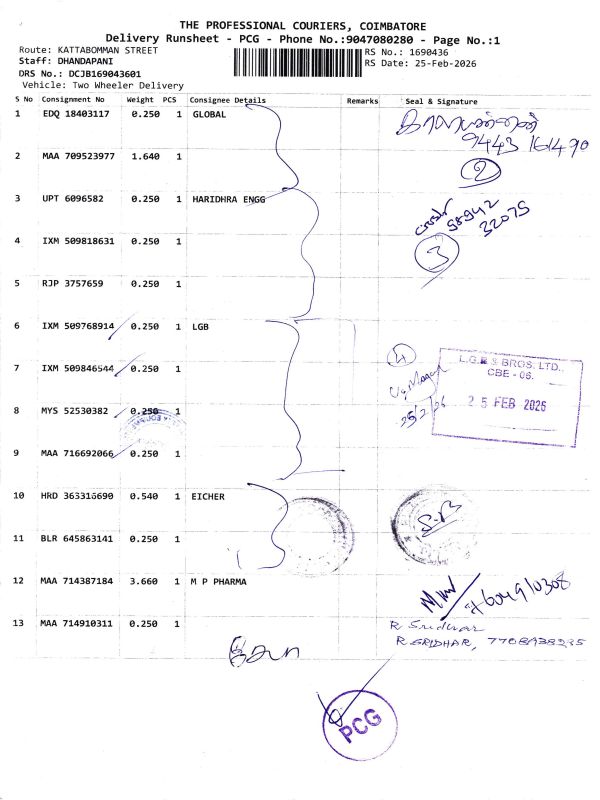 THE PROFESSIONAL COURIERS, COIMBATORE
Delivery Runsheet - PCG - Phone No.:9047080280 - Page No.:1
Route: KATTABOMMAN STREET
RS No.: 1690436
Staff: DHANDAPANI
RS Date: 25-Feb-2026
DRS No.: DCJB169043601
Vehicle: Two Wheeler Delivery
S No Consignment No Weight PCS Consignee Details Remarks Seal & Signature
1 EDQ 18403117 0.250 1 GLOBAL
9443 161490
2 MAA 709523977 1.640 1
2
3 UPT 6096582 0.250 1 HARIDHRA ENGG
98942
32075
4 IXM 509818631 0.250 1
3
5 RJP 3757659 0.250 1
6 IXM 509768914 0.250 1 LGB
4
L.G.B & BROS. LTD.,
CBE - 06.
7 IXM 509846544 0.250 1
25 FEB 2026
8 MYS 52530382 0.250 1
25/2/26
9 MAA 716692066 0.250 1
10 HRD 363316690 0.540 1 EICHER
11 BLR 645863141 0.250 1
12 MAA 714387184 3.660 1 M P PHARMA
13 MAA 714910311 0.250 1
R Sridhar
R SRIDHAR,
PCG